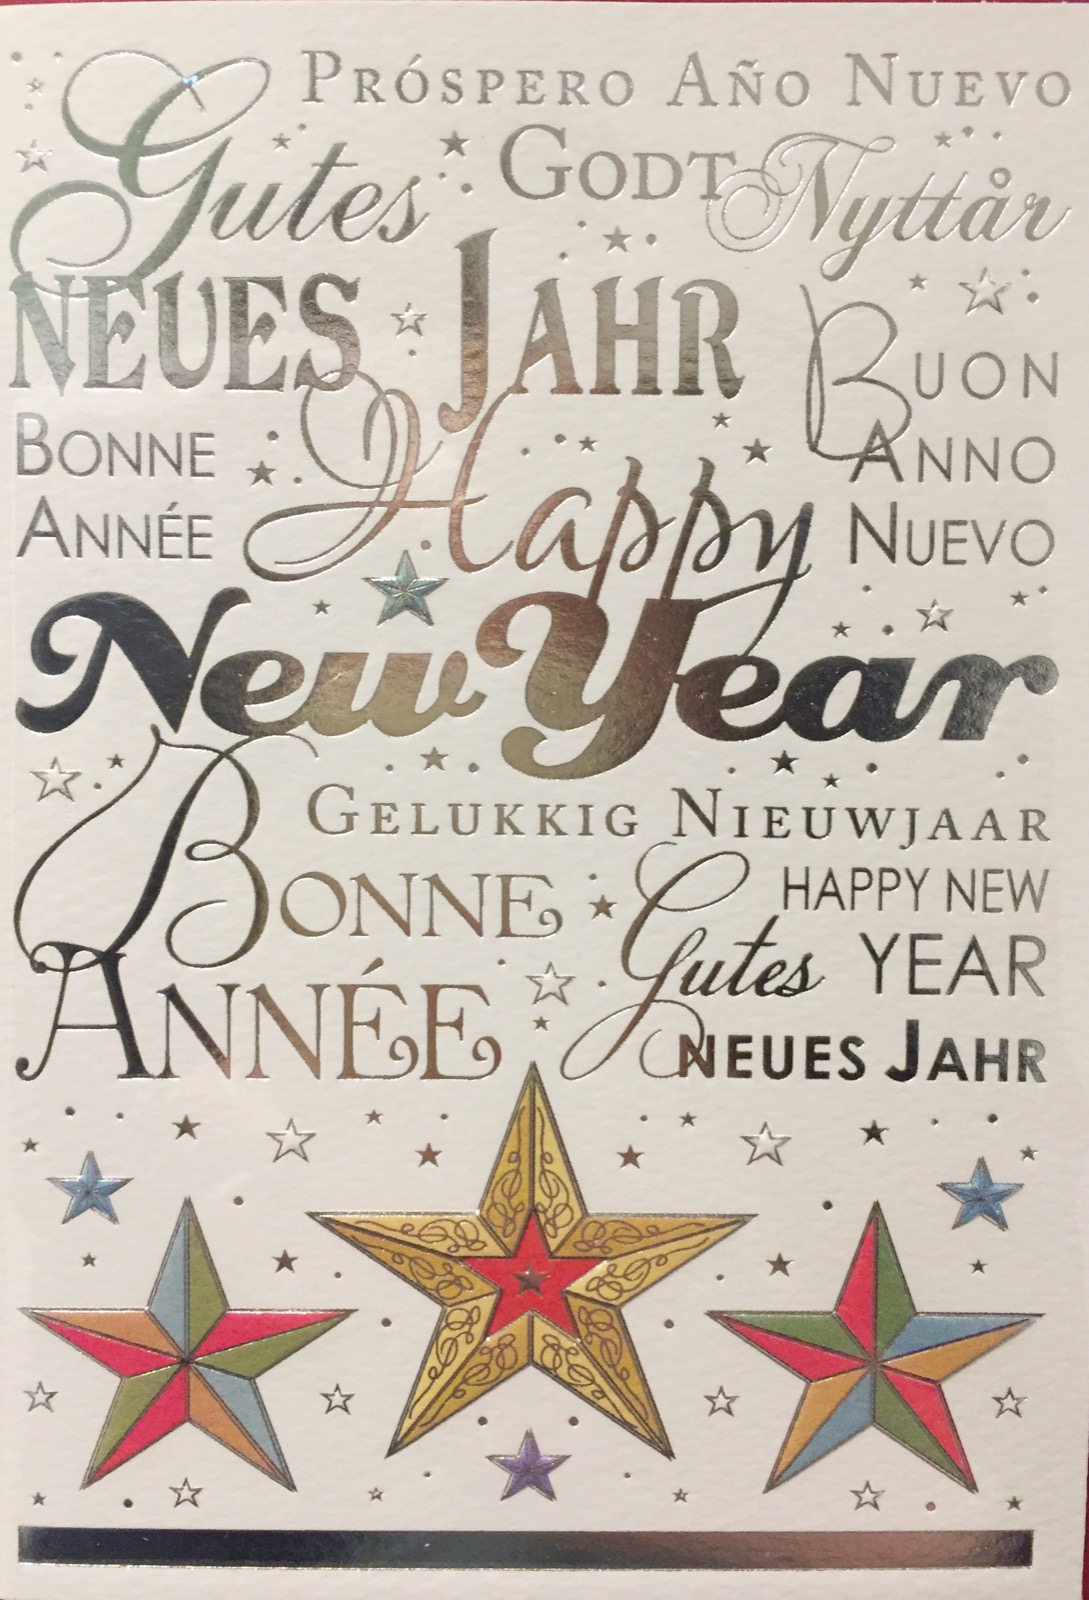 PRÓSPERO AÑO NUEVO
Gutes
GODT Nyttår
NEUES JAHR
BUON
ANNO
NUEVO
BONNE
ANNÉE
Happy
New Year
GELUKKIG NIEUWJAAR
BONNE
ANNÉE
HAPPY NEW
YEAR
Gutes
NEUES JAHR